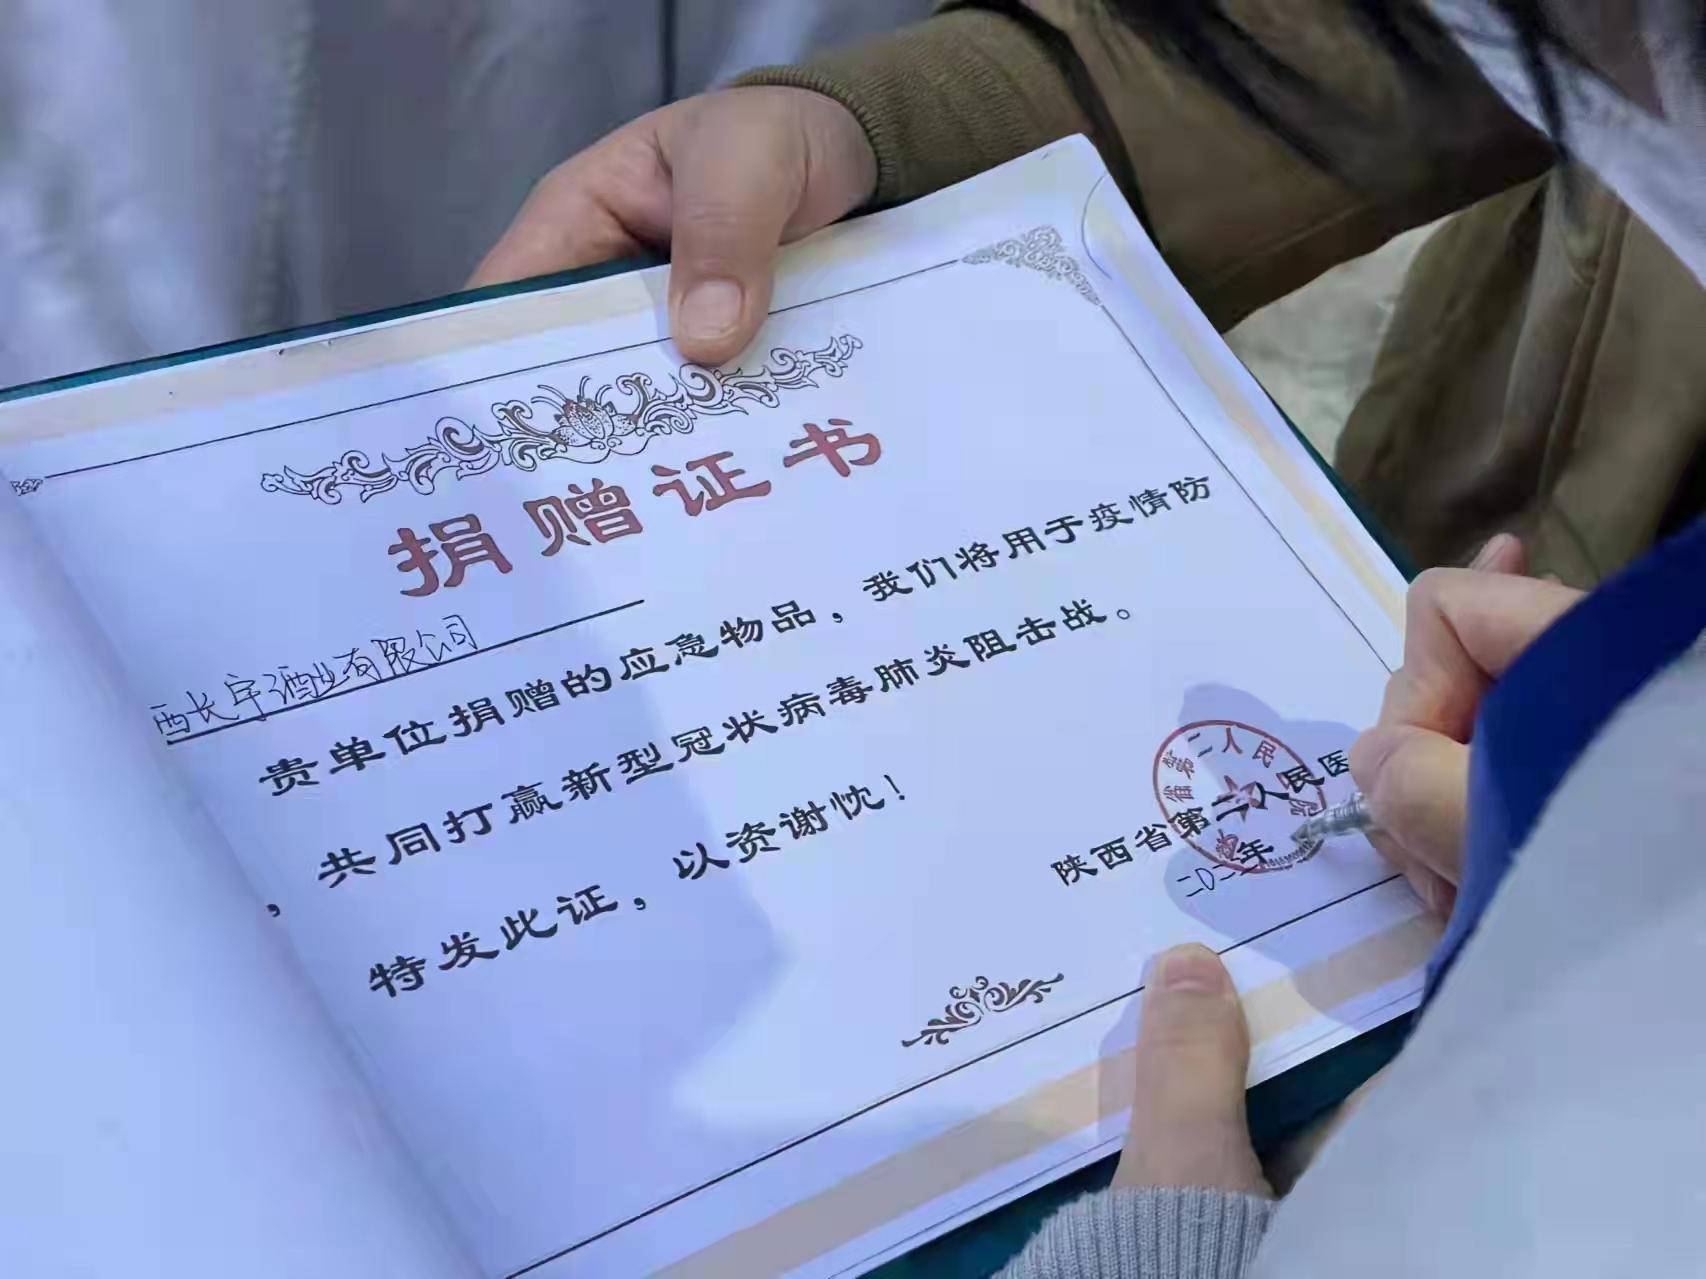 捐赠证书
西长宇酒业有限公司
贵单位捐赠的应急物品，我们将用于疫情防
，共同打赢新型冠状病毒肺炎阻击战。
特发此证，以资谢忱！
陕西省第二人民医
二〇二二年
省第二人民